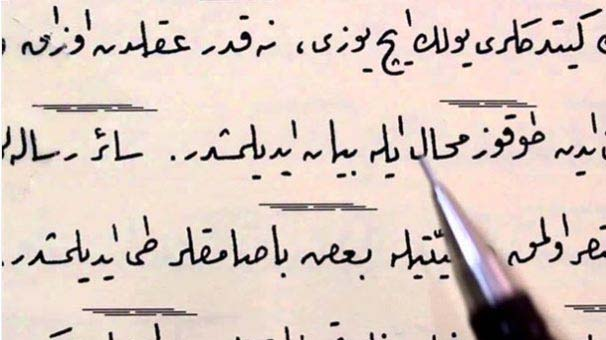 كیتدكلری یولك ایچ یوزی، نه قدر عقلدن اوزاق
ایدن طوقوز محال ایله بیان ایدیلمشدر. سائر رساله
اولمق نیّتیله بعض باصامقلر طی ایدیلمشدر.